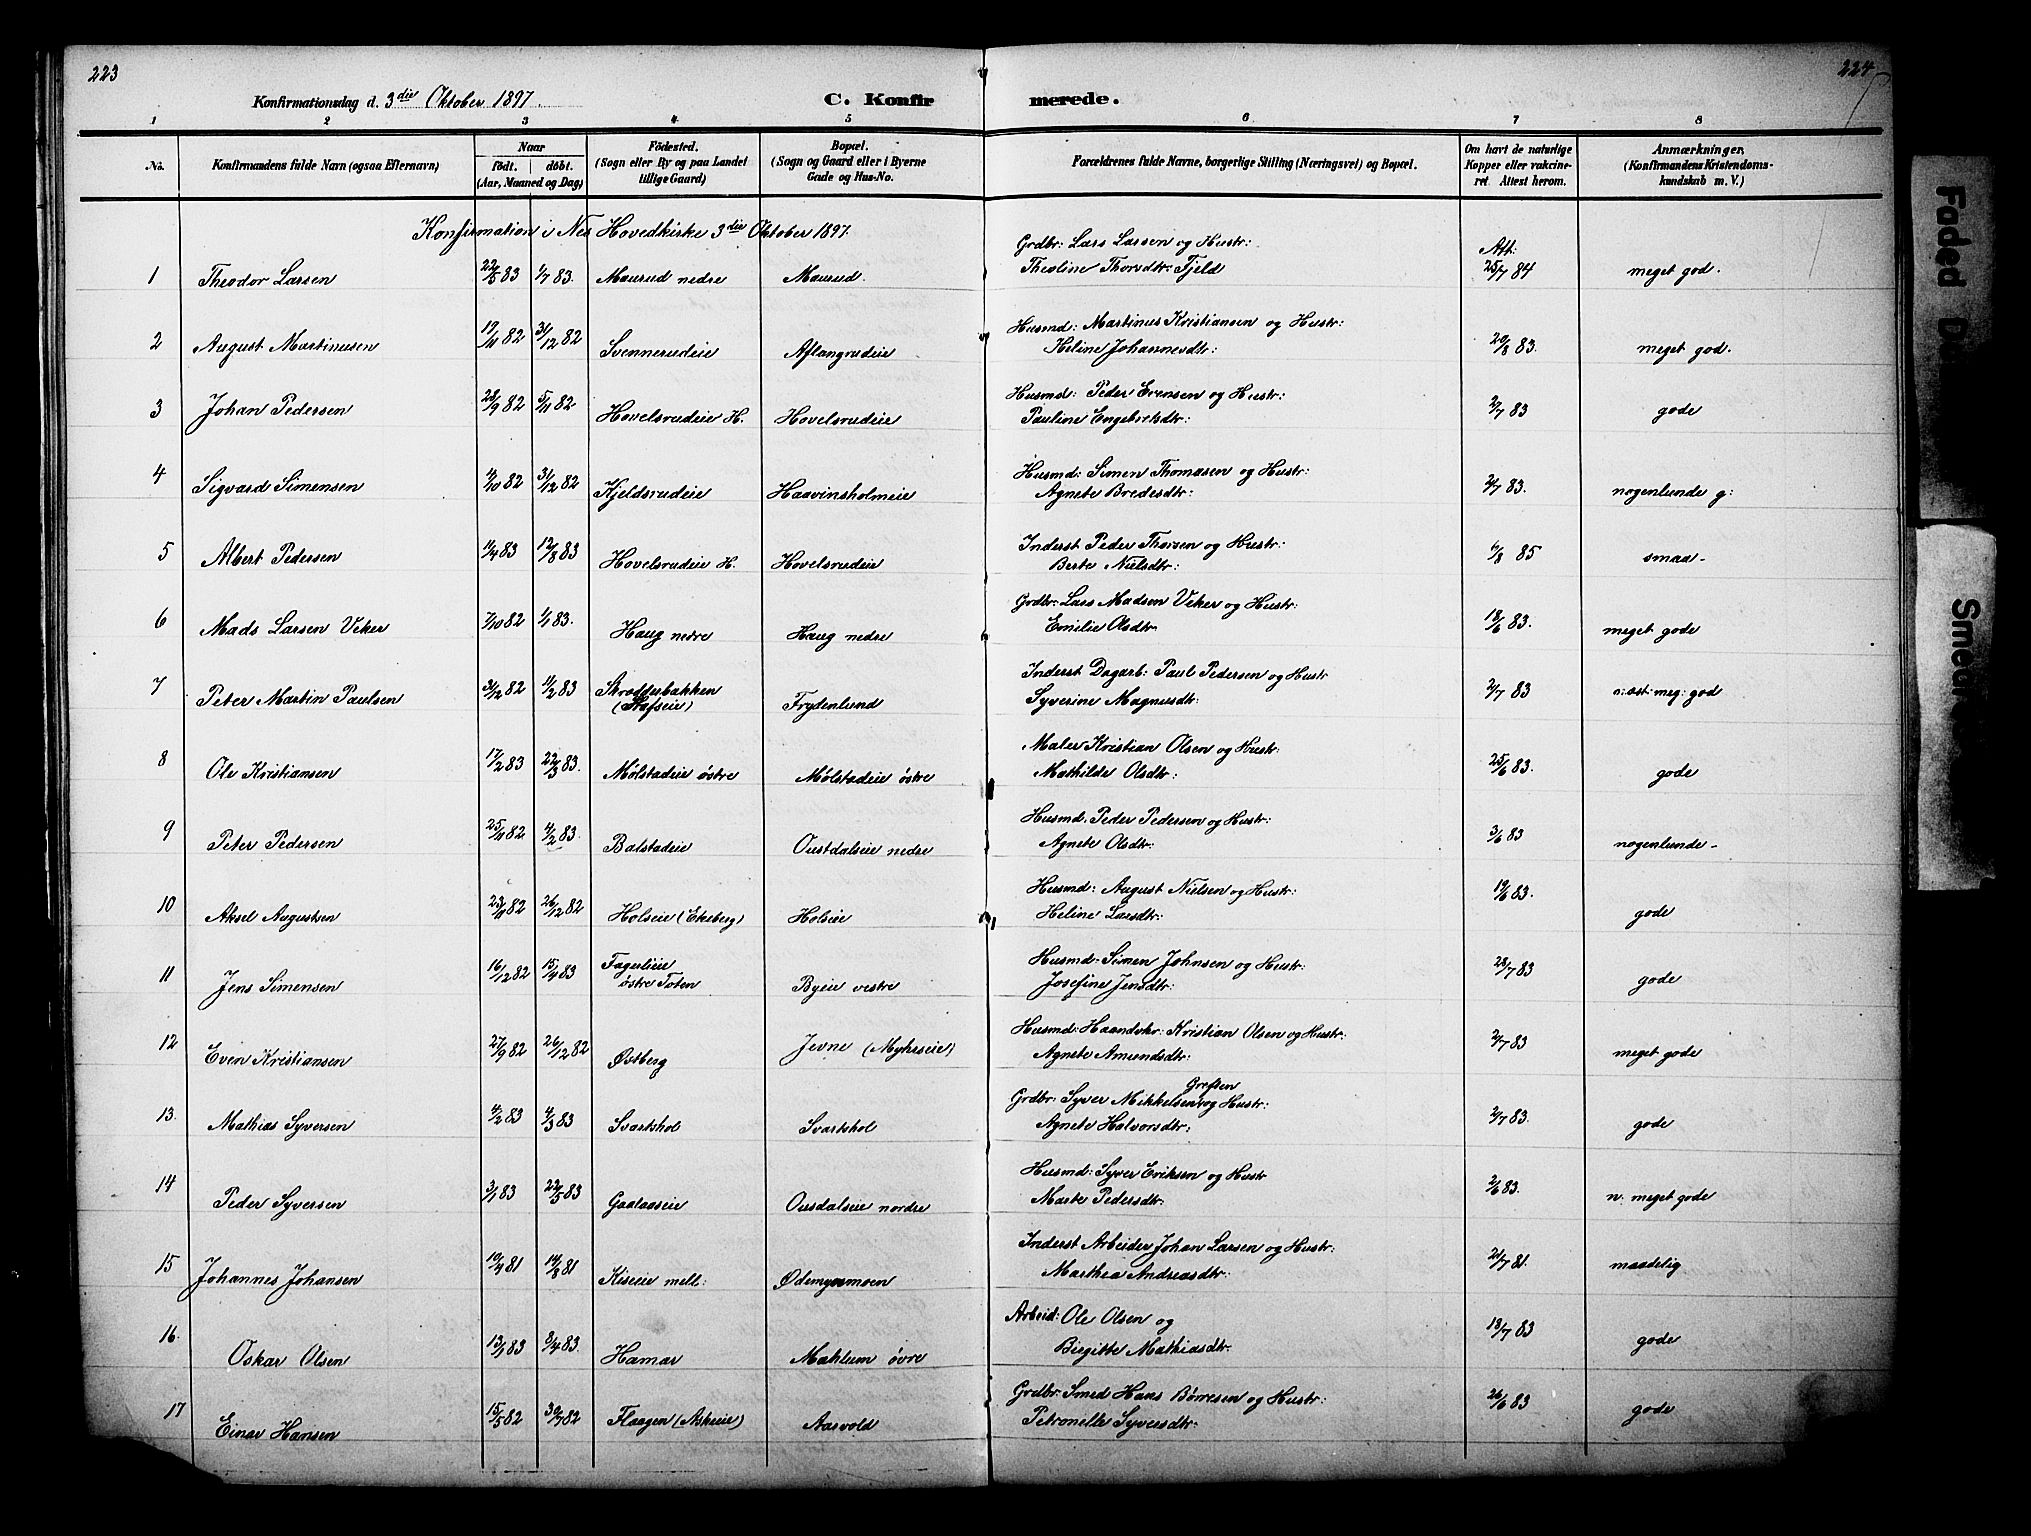 223
224
Konfirmationsdag d. 3die Oktober 1897.
C. Konfirmerede.
1 2 3 4 5 6 7 8
No. Konfirmandens fulde Navn (ogsaa Efternavn) Naar födt. döbt. (Aar, Maaned og Dag) Födested. (Sogn eller By og paa Landet tillige Gaard) Bopæl. (Sogn og Gaard eller i Byerne Gade og Hus-No. Forældrenes fulde Navne, borgerlige Stilling (Næringsvei) og Bopæl. Om havt de naturlige Kopper eller vakcineret. Attest herom. Anmærkninger, (Konfirmandens Kristendomskundskab m. V.)
Konfirmation i Nes Hovedkirke 3die Oktober 1897.
1 Theodor Larsen 22/5 83 1/7 83. Maurud nedre Maurud. Grdbr: Lars Larsen og Hustr: Theoline Thorsdtr: Fjeld Att: 25/7 84 meget god.
2 August Martinusen 19/11 82 31/12 82 Svennerudeie Aflangrudeie Husmd: Martinus Kristiansen og Hustr: Heline Johannesdtr: 20/8 83. meget god.
3 Johan Pedersen 28/9 82 5/11 82 Hovelsrudeie H. Hovelsrudeie Husmd: Peder Evensen og Hustr: Pauline Engebretsdtr: 2/7 83 gode
4 Sigvard Simensen /10 82 31/12 82 Kjeldsrudeie Haavinsholmeie Husmd: Simen Thomasen og Hustr: Agnete Bredesdtr: 2/7 83. nogenlunde g:
5 Albert Pedersen 11/4 83 12/8 83 Hovelsrudeie H. Hovelsrudeie Inderst Peder Thorsen og Hustr: Berte Nielsdtr: /8 85 smaa-
6 Mads Larsen Veker 7/10 82 1/1 83. Haug nedre Haug nedre Grdbr: Lars Madsen Veker og Hustr: Emilie Olsdtr 18/6 83. meget gode
7 Peter Martin Paulsen 3/12 82 11/2 83 Skrædderbakken (Stafseie) Frydenlund Inderst Dagarb: Paul Pedersen og Hustr Syverine Magnusdtr: 2/7 83 n:æst-meg: god
8 Ole Kristiansen 17/2 83 22/3 83. Mølstadeie østre Mølstadeie østre Maler Kristian Olsen og Hustr: Mathilde Olsdtr: 25/6 83. gode
9 Peter Pedersen 25/11 82 4/2 83. Balstadeie Oustdalseie nedre Husmd. Peder Pedersen og Hustr: Agnete Olsdtr: 3/6 83 nogenlunde-
10 Aksel Augustsen 23/11 82 26/12 82 Holseie (Ekeberg) Holseie Husmd: August Nielsen og Hustr: Heline Larsdtr: 19/6 83. gode
11 Jens Simensen 16/12 82 15/4 83 Fagerlieie østre Toten Byeie vestre Husmd: Simen Johnsen og Hustr: Josefine Jensdtr: 28/7 83 gode
12 Even Kristiansen 27/9 82 26/12 82 Østberg Jevne (Myhrseie) Husmd: Haandvkr: Kristian Olsen og Hustr: Agnete Amundsdtr: 2/7 83 meget gode
13. Mathias Syversen 4/2 83 4/3 83 Svartshol Svartshol Grdbr: Syver Mikkelsen Grefsen og Hustr: Agnete Halvorsdtr: 2/7 83. gode
14 Peder Syversen 3/1 83 22/5 83 Gaalaaseie Ousdalseie nordre Husmd: Syver Eriksen og Hustr Marte Pedersdtr: 2/6 83. n. meget gode
15 Johannes Johansen 19/4 81 14/8 81 Kiseie mell: Ødemyrsmoen Inderst Arbeider Johan Larsen og Hustr: Marthea Andreasdtr: 21/7 81. maadelig
16. Oskar Olsen 13/1 83 8/4 83. Hamar Mahlum øvre Arbeid: Ole Olsen og Birgitte Mathiasdtr. 13/7 83 gode
17 Einar Hansen 15/5 82 30/7 82 Flaagen (Askeie) Aasvold Grdbr: Smed Hans Børresen og Hustr: Petronelle Syversdtr: 26/6 83 gode
Faded D
Smear